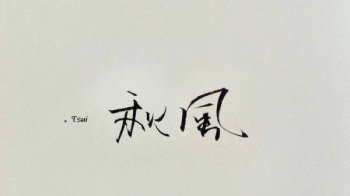 Tsui 秋風